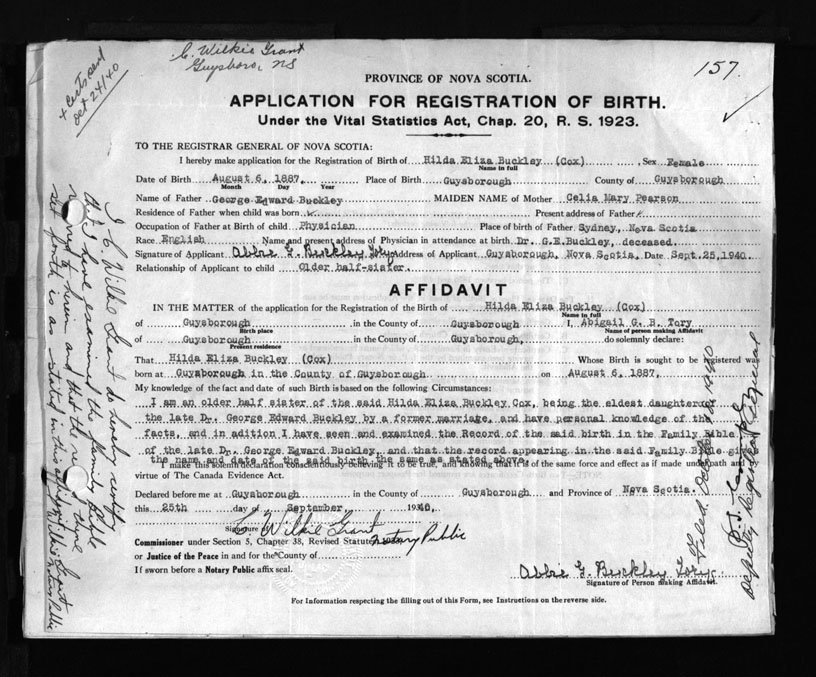 C. Wilkie Grant
Guysboro, NS
157.
+ Certs sent
Oct 24/40
PROVINCE OF NOVA SCOTIA.
APPLICATION FOR REGISTRATION OF BIRTH.
Under the Vital Statistics Act, Chap. 20, R. S. 1923.
TO THE REGISTRAR GENERAL OF NOVA SCOTIA:
I hereby make application for the Registration of Birth of Hilda Eliza Buckley (Cox), Sex Female
Name in full
Date of Birth August 6, 1887, Place of Birth Guysborough County of Guysborough
Month Day Year
Name of Father George Edward Buckley MAIDEN NAME of Mother Celia Mary Pearson
Residence of Father when child was born Present address of Father
Occupation of Father at Birth of child Physician Place of birth of Father Sydney, Nova Scotia
Race English Name and present address of Physician in attendance at birth Dr. G.E.Buckley, deceased.
Signature of Applicant Abbie G. Buckley Tory Address of Applicant Guysborough, Nova Scotia. Date Sept.25,1940.
Relationship of Applicant to child Older half-sister.
AFFIDAVIT
IN THE MATTER of the application for the Registration of the Birth of Hilda Eliza Buckley (Cox)
Name in full
of Guysborough in the County of Guysborough I, Abigail G. B. Tory
Birth place Name of person making Affidavit
of Guysborough in the County of Guysborough, do solemnly declare:
Present residence
That Hilda Eliza Buckley (Cox) Whose Birth is sought to be registered was
born at Guysborough in the County of Guysborough on August 6, 1887,
My knowledge of the fact and date of such Birth is based on the following Circumstances:
I am an older half sister of the said Hilda Eliza Buckley Cox, being the eldest daughter of
the late Dr. George Edward Buckley by a former marriage, and have personal knowledge of the
facts, and in adition I have seen and examined the Record of the said birth in the Family Bible
of the late Dr. George Edward Buckley, and that the record appearing in the said Family Bible gives
the name and date of the said birth the same as stated above.
I make this solemn declaration conscientiously believing it to be true, and knowing that it is of the same force and effect as if made under oath and by
virtue of The Canada Evidence Act.
Declared before me at Guysborough in the County of Guysborough and Province of Nova Scotia.
this 25th day of September, 1940,
Signature C. Wilkie Grant
Commissioner under Section 3, Chapter 38, Revised Statutes Notary Public
or Justice of the Peace in and for the County of
If sworn before a Notary Public affix seal.
Abbie G. Buckley Tory
Signature of Person making Affidavit.
For Information respecting the filling out of this Form, see Instructions on the reverse side.
I C. Wilkie Grant do hereby certify
that I have examined the family Bible
referred to herein and that the record there
set forth is as stated in this affidavit
C. Wilkie Grant
Notary Public
Filed Oct 1940
Deputy Registrar General